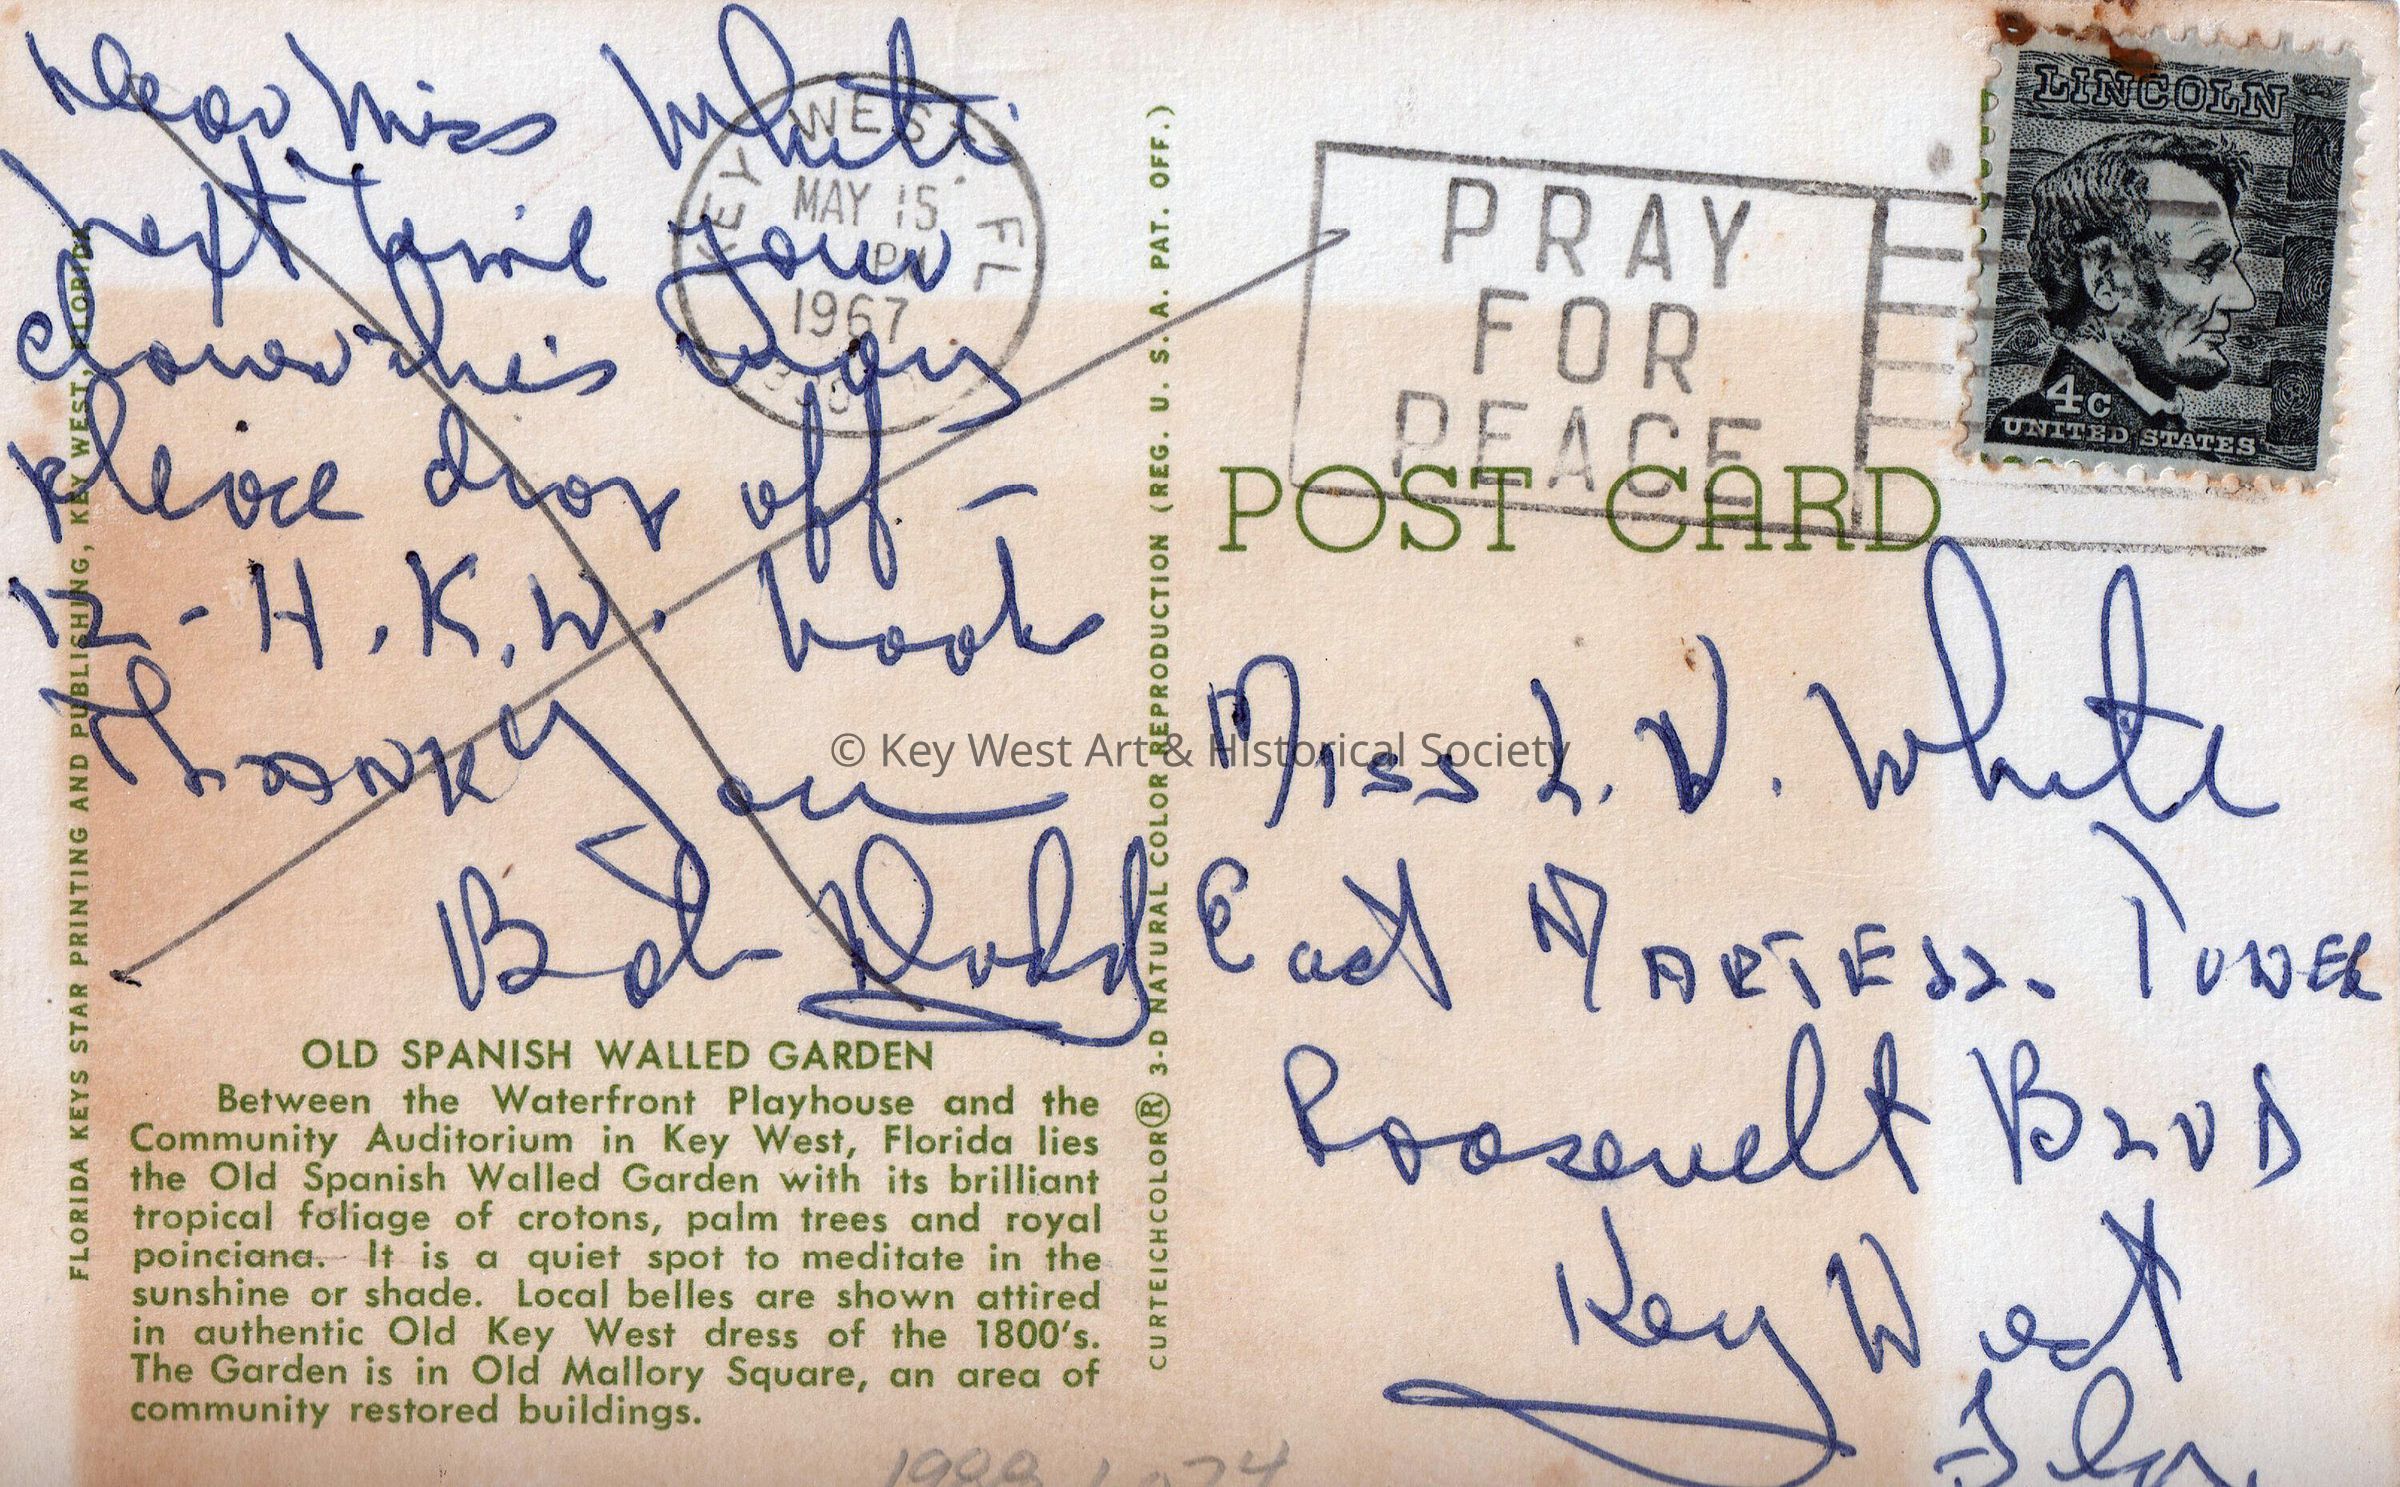 Dear Miss White
Next Time your
down this way
please drop off –
12 - H.K.W. book
Thank you
Bob Dodd
OLD SPANISH WALLED GARDEN
Between the Waterfront Playhouse and the
Community Auditorium in Key West, Florida lies
the Old Spanish Walled Garden with its brilliant
tropical foliage of crotons, palm trees and royal
poinciana. It is a quiet spot to meditate in the
sunshine or shade. Local belles are shown attired
in authentic Old Key West dress of the 1800's.
The Garden is in Old Mallory Square, an area of
community restored buildings.
FLORIDA KEYS STAR PRINTING AND PUBLISHING, KEY WEST, FLORIDA
CURTEICHCOLOR® 3-D NATURAL COLOR REPRODUCTION (REG. U. S. A. PAT. OFF.)
KEY WEST FL
MAY 15
PM
1967
PRAY
FOR
PEACE
LINCOLN
4c
UNITED STATES
POST CARD
Miss L. V. White
East MARTELLO. TOWER
Roosevelt BLVD
Key West
Fla.
© Key West Art & Historical Society